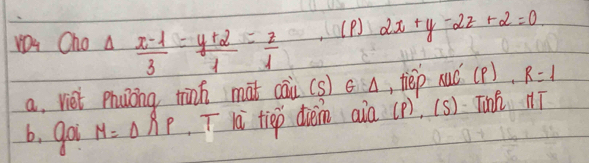 VD4 Cho Δ (x-1)/3 = (y+2)/1 = z/1 , (P) 2x + y - 2z + 2 = 0.
a. viết Phương trình mặt cầu (S) ∈ Δ, tiếp xúc (P), R = 1
b. gọi M = Δ ∩ P, T là tiếp điểm của (P), (S). Tính MT